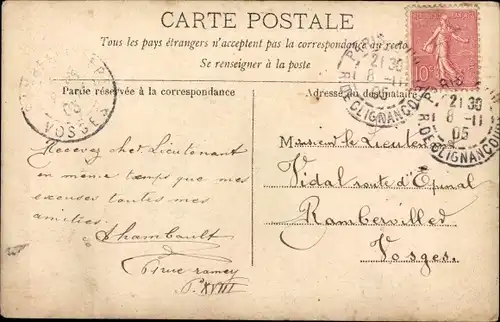 CARTE POSTALE
Tous les pays étrangers n'acceptent pas la correspondance au recto
Se renseigner à la poste
Partie réservée à la correspondance
Adresse du destinataire
PARIS
21 30
8 - 11
05
R. DE CLIGNANCOURT
PARIS
21 30
8 - 11
05
R. DE CLIGNANCOURT
10 c
05
VOSGES
Recevez cher Lieutenant
en même temps que mes
excuses toutes mes
amitiés.
rue ramey
P. XVIII
Monsieur le Lieutenant
Vidal route d'Epinal
Rambervilled
Vosges.